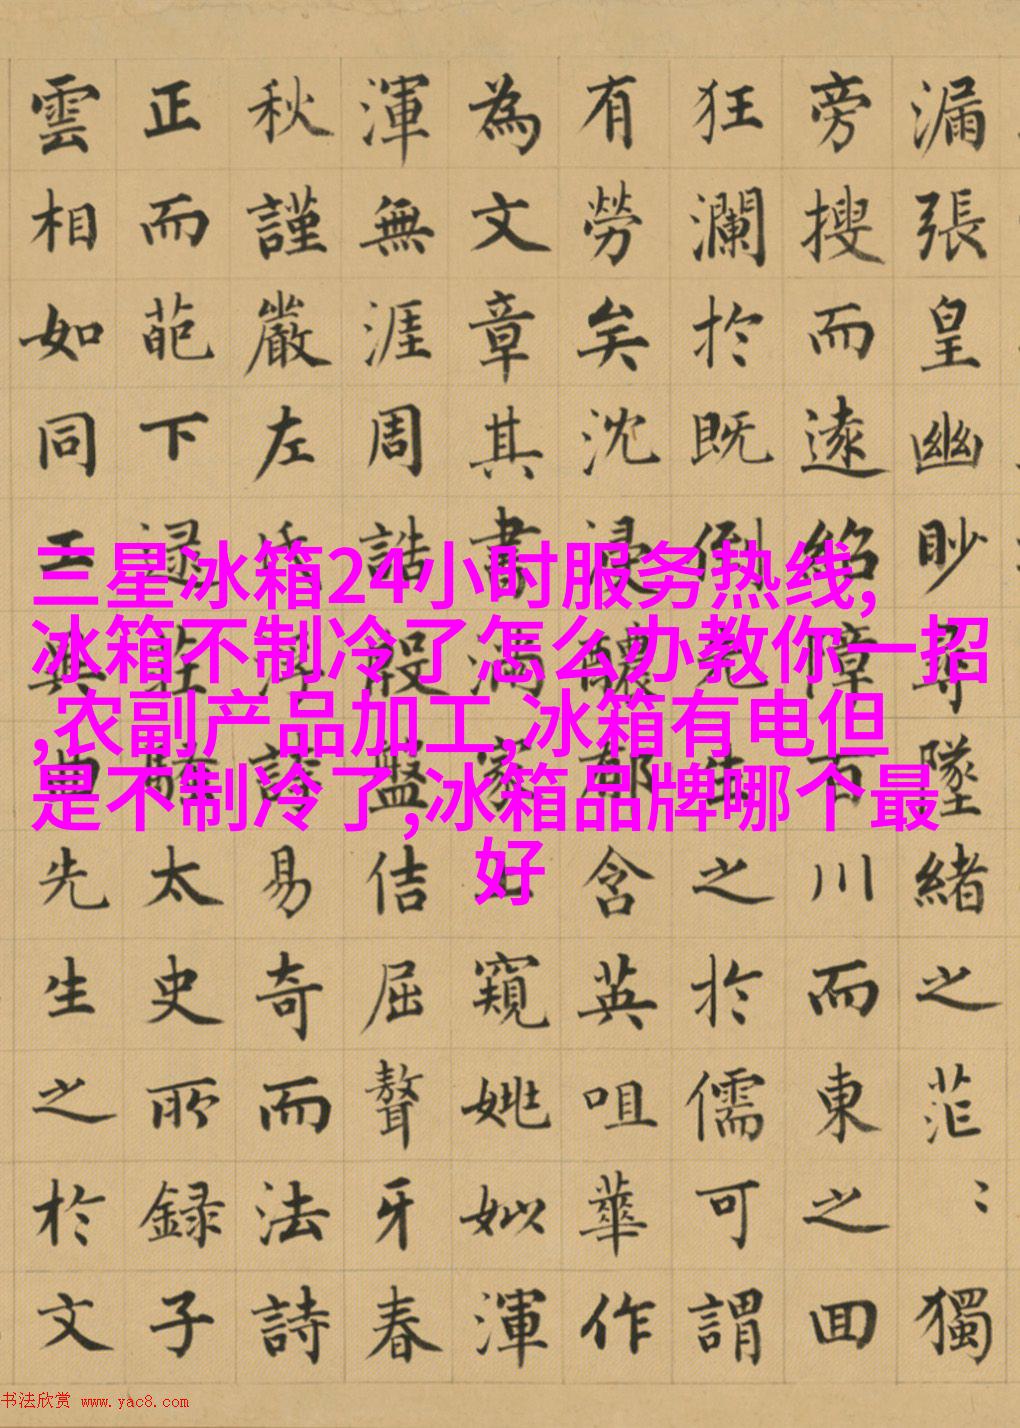 漏張皇幽眇尋墜緒之茫〻獨
旁搜而遠紹障百川而東之回
狂瀾於既倒先生之於儒可謂
有勞矣沈浸醲郁含英咀華作
為文章其書滿家上窺姚姒渾
渾無涯周誥殷盤佶屈聱牙春
秋謹嚴左氏浮誇易奇而法詩
正而葩下逮莊騷太史所録子
雲相如同工異曲先生之於文
三星冰箱24小时服务热线,
冰箱不制冷了怎么办教你一招
,农副产品加工,冰箱有电但
是不制冷了,冰箱品牌哪个最
好
书法欣赏 www.yac8.com